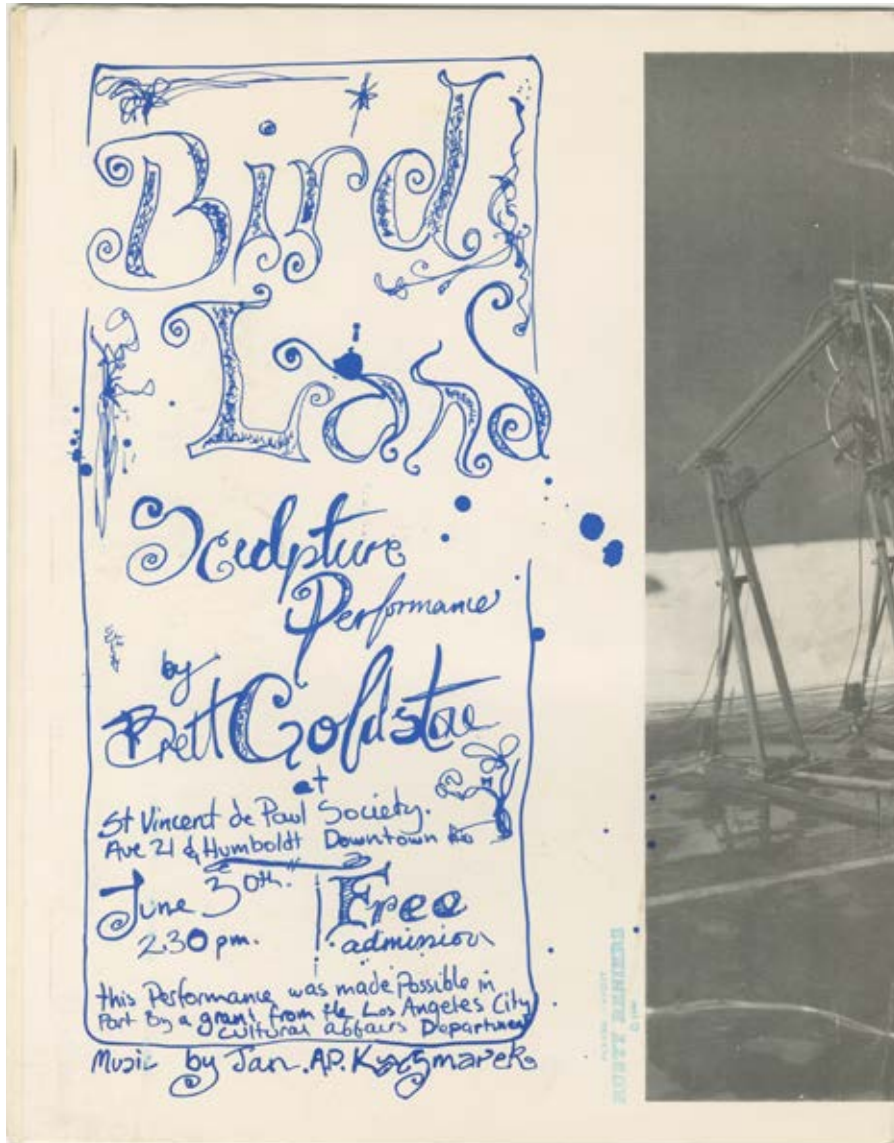 Bird
Land
Sculpture
Performance
by
Brett Goldstone
at
St Vincent de Paul Society.
Ave 21 & Humboldt Downtown
June 30th.
2.30 pm.
Free
admission
this Performance was made Possible in
Part By a grant from the Los Angeles City
Cultural affairs Department
Music by Jan. A.P. Kaczmarek
RUSTY RENIERS